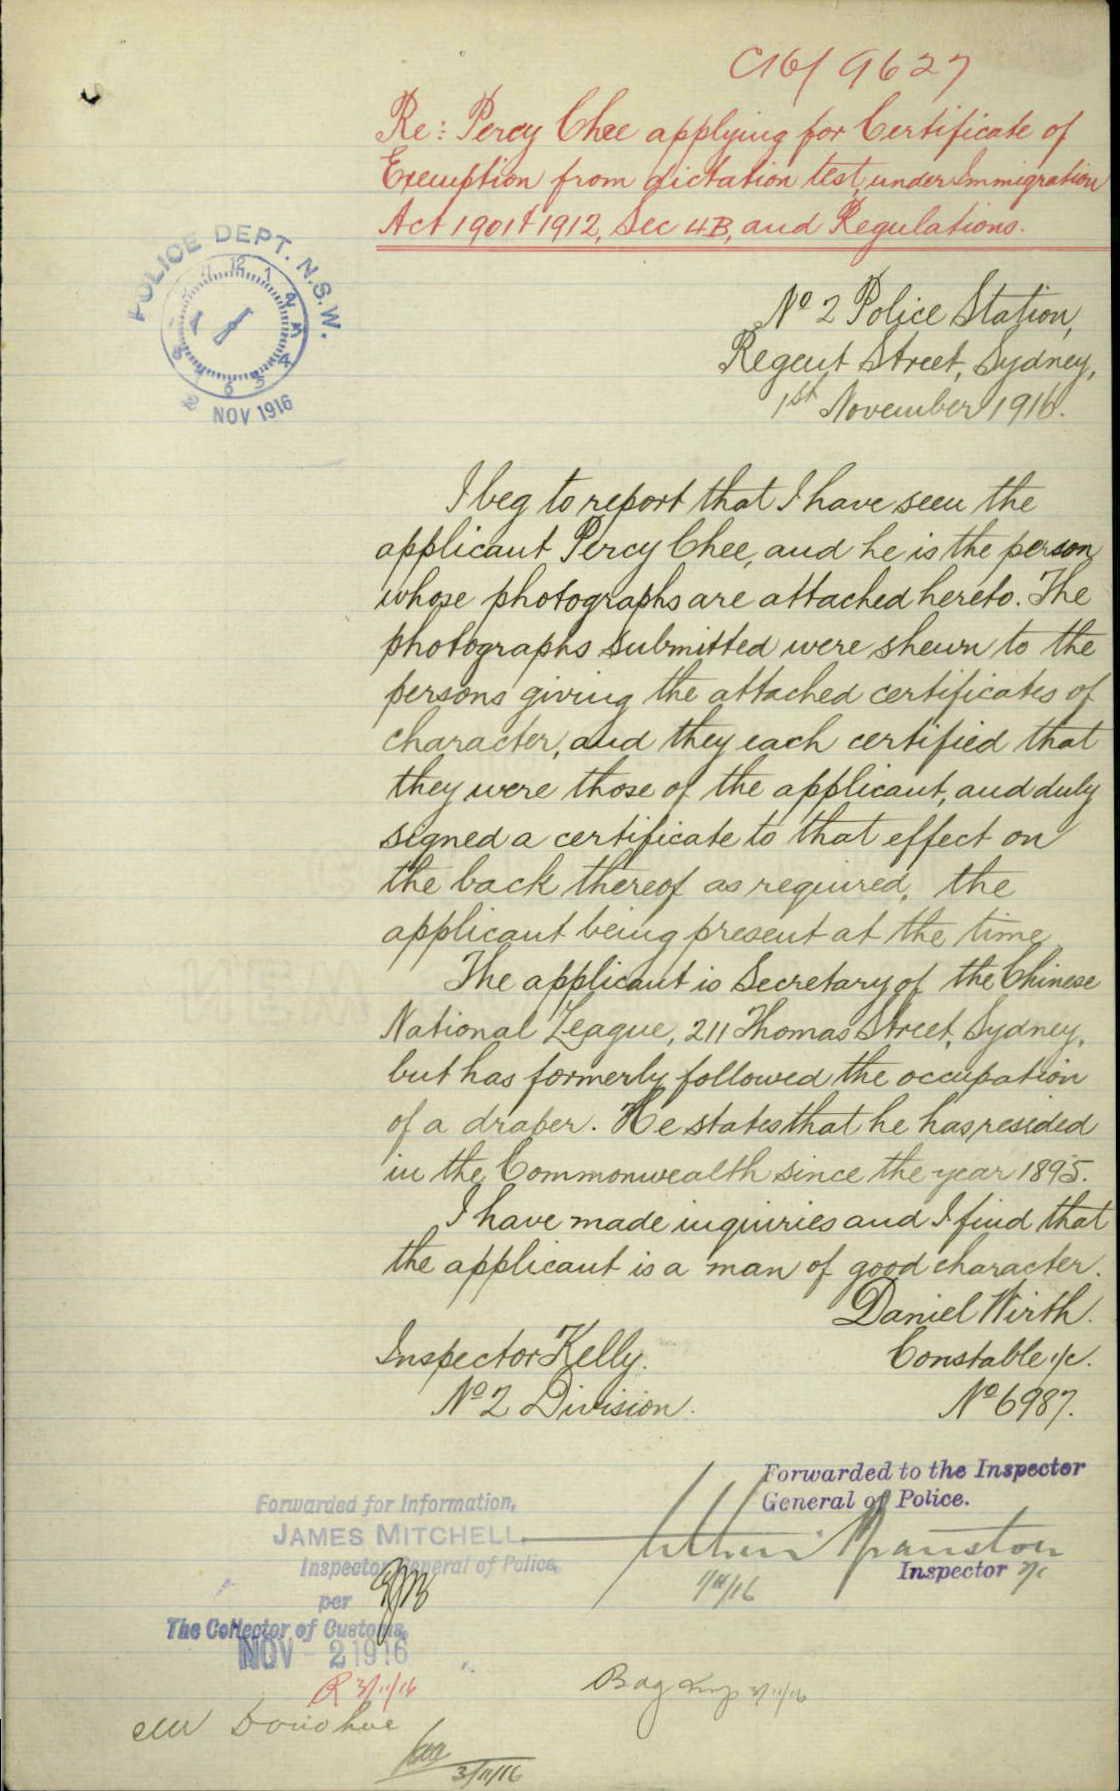 C16/9627
Re: Percy Chee applying for Certificate of
Exemption from dictation test, under Immigration
Act 1901 & 1912, Sec 4B, and Regulations.
POLICE DEPT. N.S.W.
2 NOV 1916
No 2 Police Station,
Regent Street, Sydney,
1st November 1916.
I beg to report that I have seen the
applicant Percy Chee, and he is the person
whose photographs are attached hereto. The
photographs submitted were shewn to the
persons giving the attached certificates of
character, and they each certified that
they were those of the applicant, and duly
signed a certificate to that effect on
the back thereof as required, the
applicant being present at the time.
The applicant is Secretary of the Chinese
National League, 211 Thomas Street, Sydney,
but has formerly followed the occupation
of a draper. He states that he has resided
in the Commonwealth since the year 1895.
I have made inquiries and I find that
the applicant is a man of good character.
Daniel Wirth.
Inspector Kelly.
Constable 1/c.
No 2 Division.
No 6987.
Forwarded to the Inspector
General of Police.
Inspector
1/11/16
Forwarded for Information,
JAMES MITCHELL
Inspector General of Police,
per
The Collector of Customs.
NOV - 2 1916
R 3/11/16
Bag 3/11/16
Mr Donohue
3/11/16